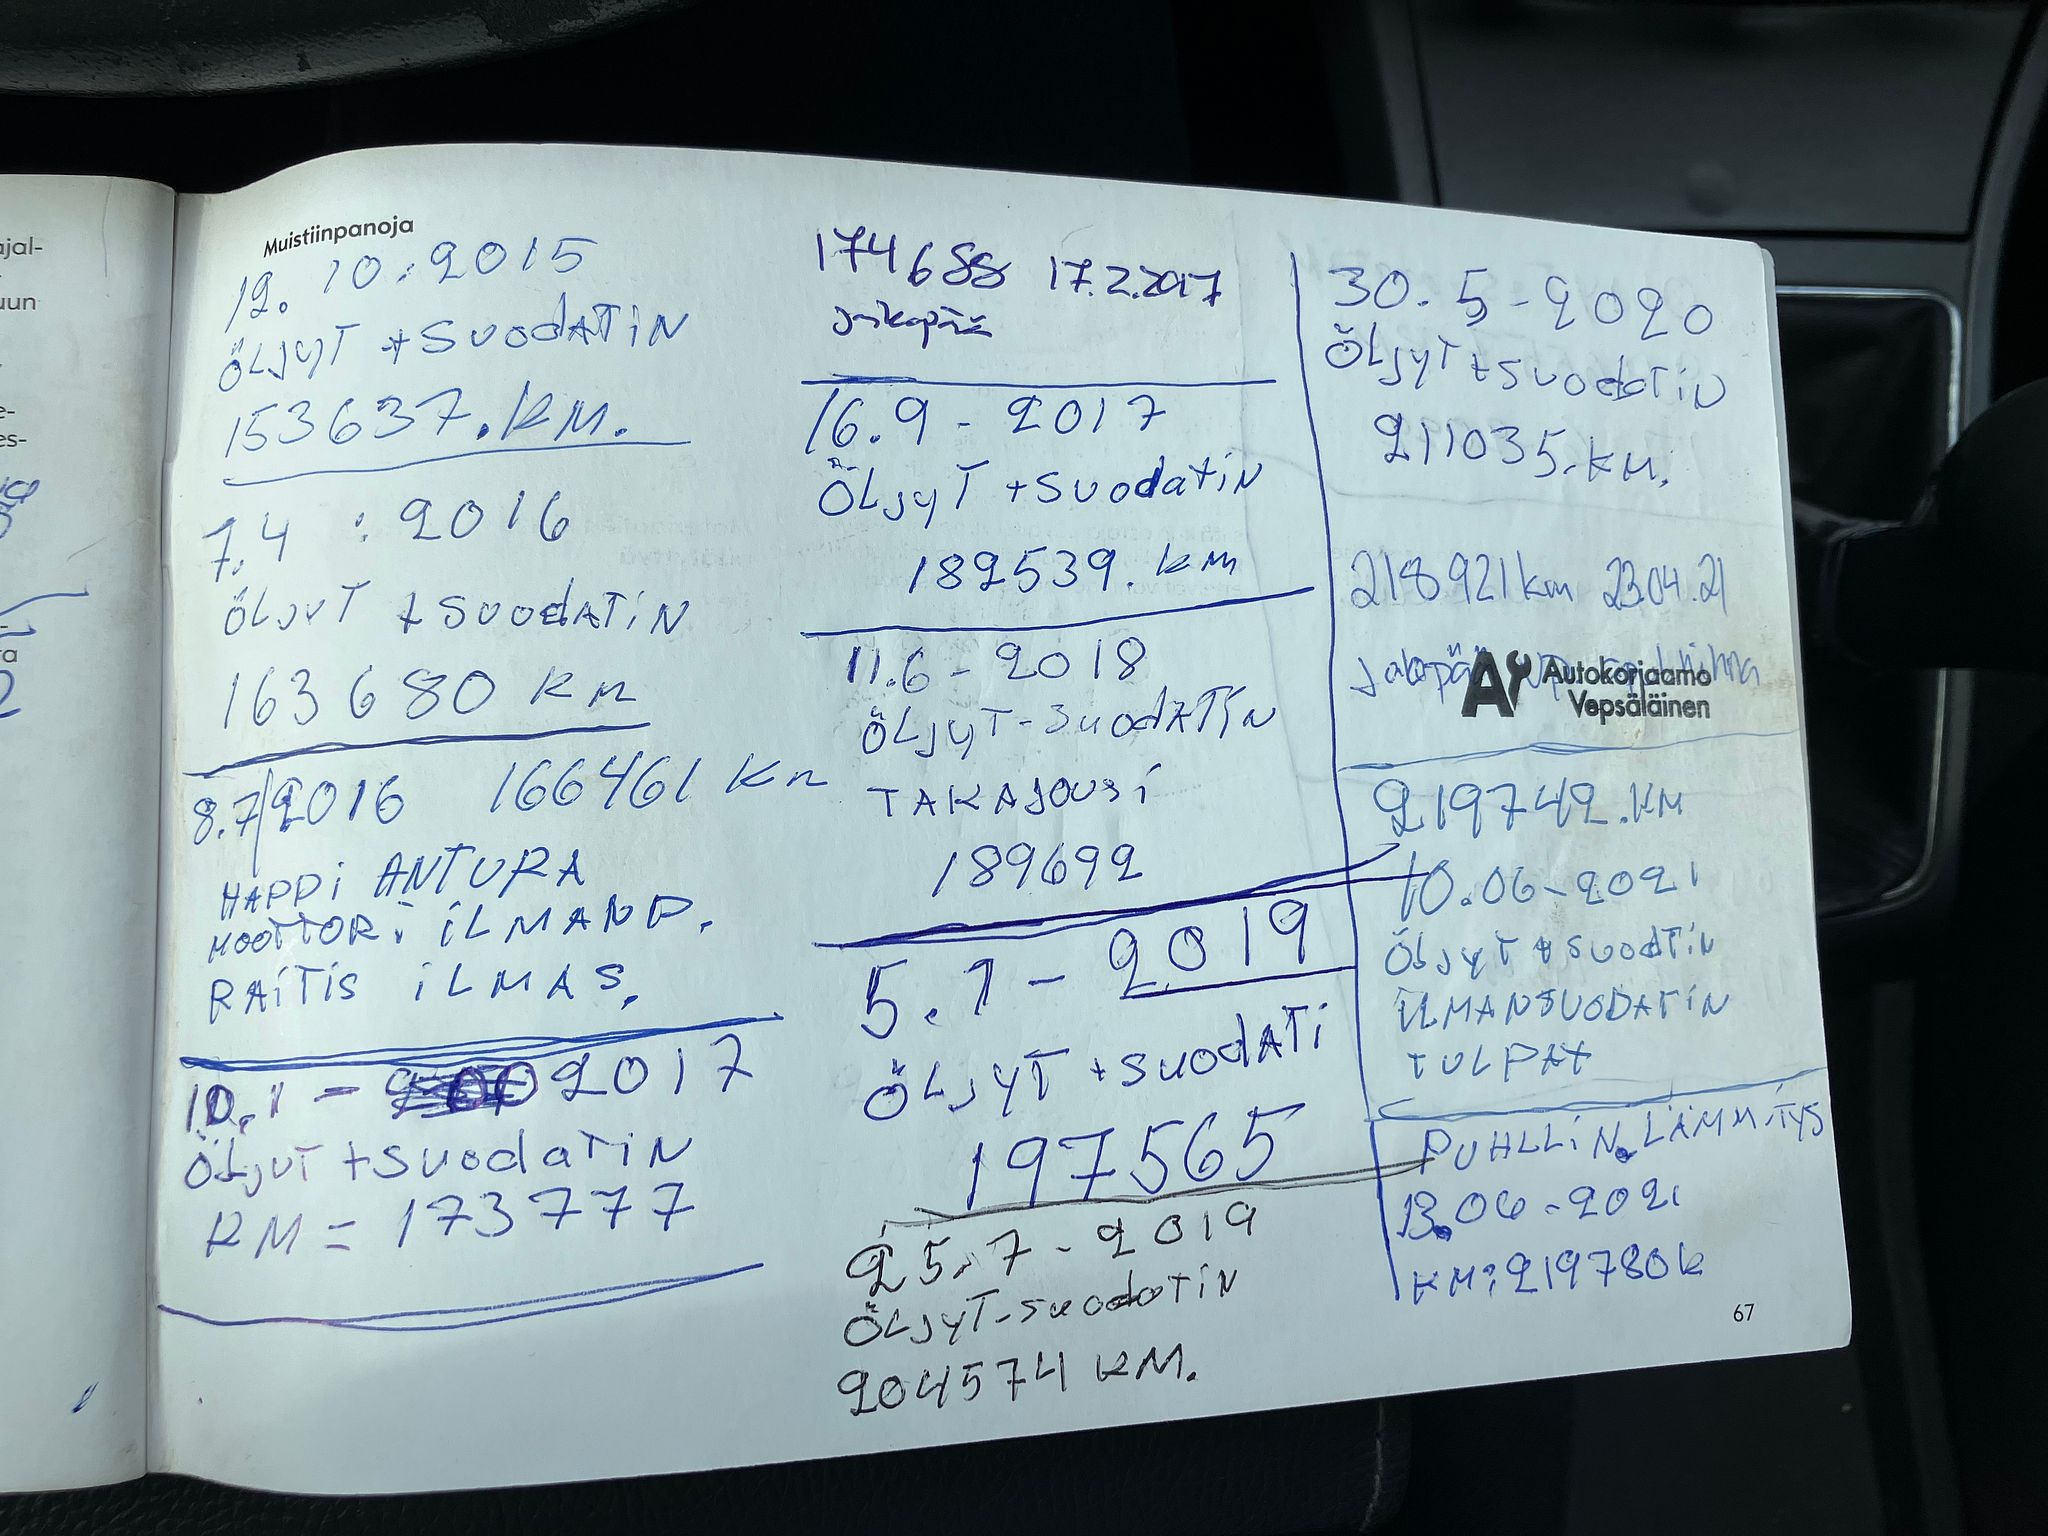 Muistiinpanoja
12.10.2015
ÖLJYT + SUODATIN
153637.KM.
7.4 : 2016
ÖLJYT + SUODATIN
163680 KM
8.7/2016 166461 KM
HAPPI ANTURA
MOOTTORi iLMANP.
RAITIS iLMAS.
10.1 - 2017
ÖLJYT + SUODATIN
KM = 173777
174688 17.2.2017
Jakopää
16.9 - 2017
ÖLJYT + SUODATIN
182539. KM
11.6 - 2018
ÖLJYT - SUODATIN
TAKAJOUSI
189692
5.1 - 2019
ÖLJYT + SUODATi
197565
25.7 - 2019
ÖLJYT - SUODATIN
204574 KM.
30.5 - 2020
ÖLJYT + SUODATIN
211035.KM.
218921 km 23.04.21
Jakopää
Autokorjaamo
Vepsäläinen
219742.KM
10.06-2021
ÖLJYT + SUODTIN
ILMANSUODATIN
TULPAT
PUHLLIN.LÄMMITYS
13.06-2021
KM:219780k
67
ajal-
uun
e-
es-